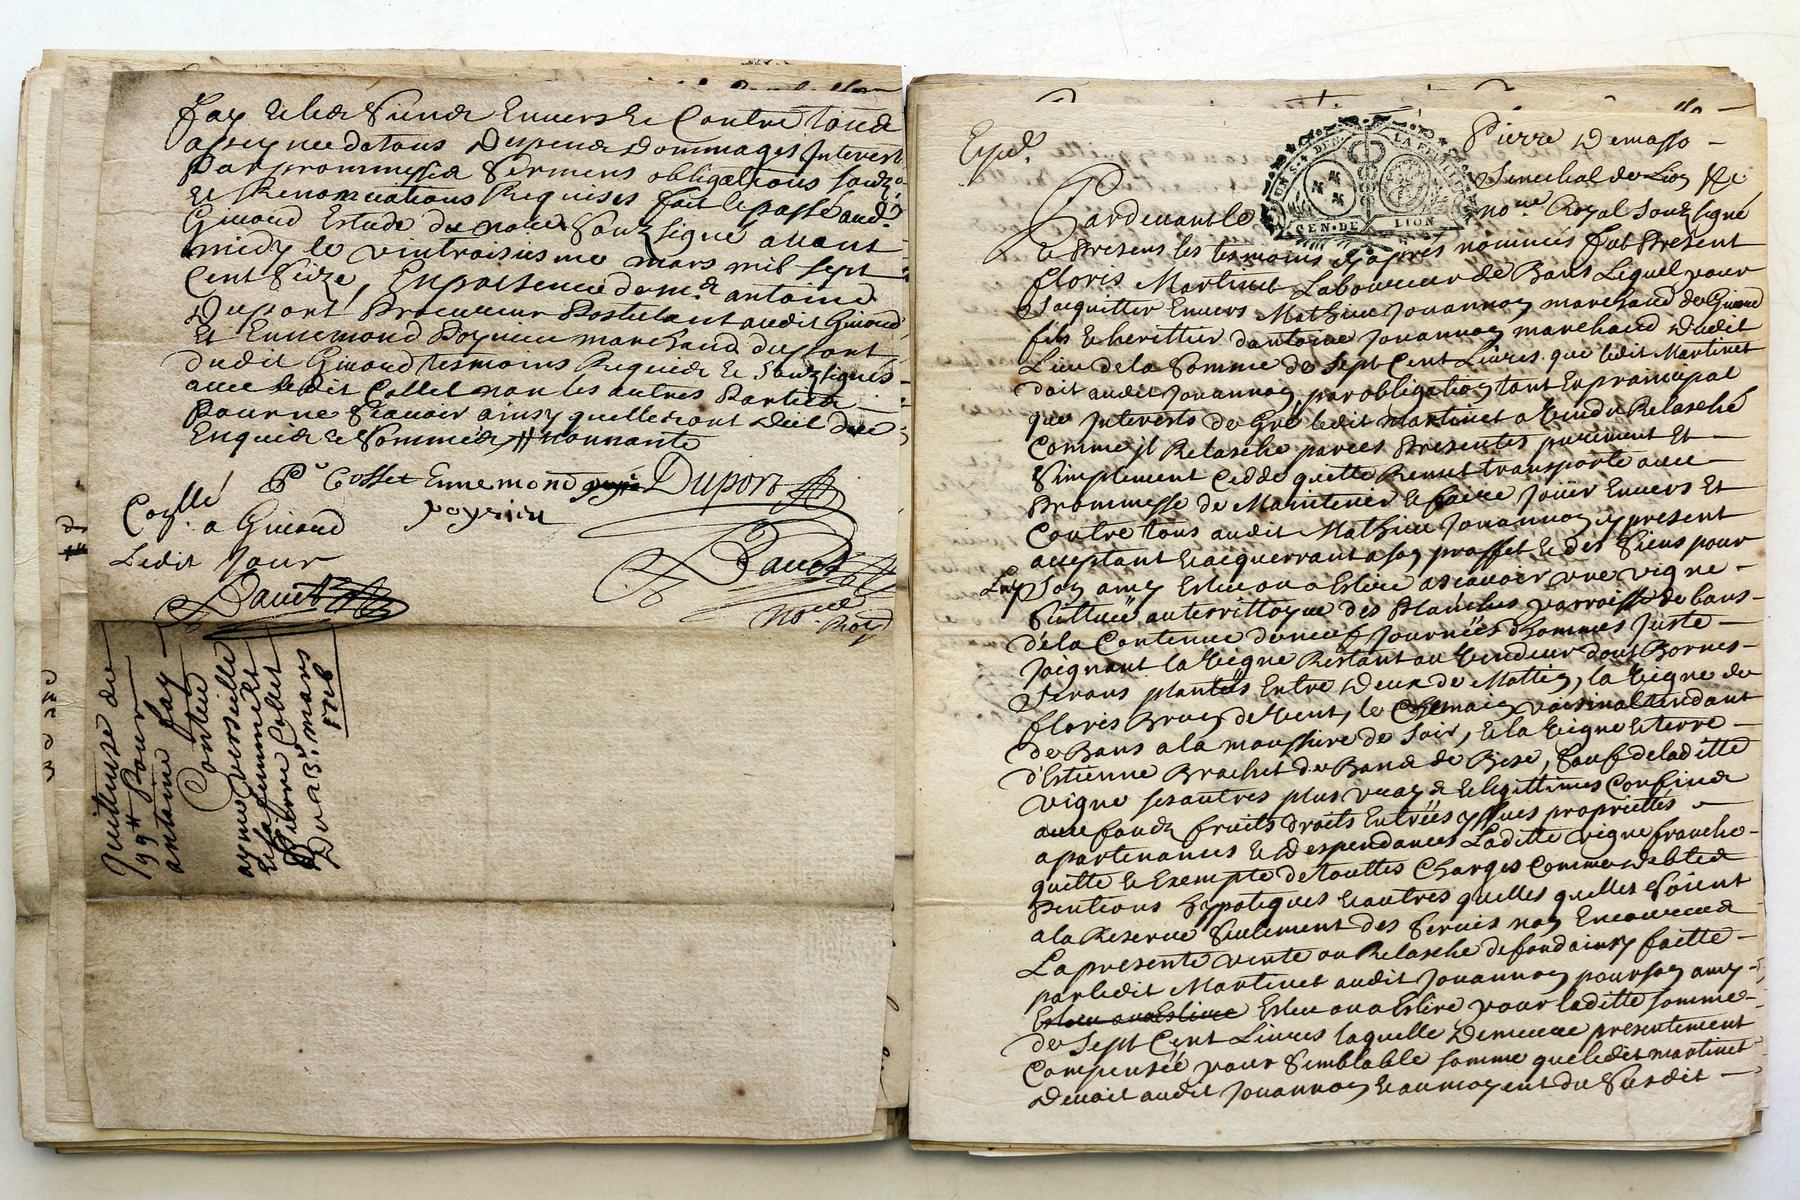 fay et les siens Envers et Contre tous
a peyne de tous Despens Dommages Interest
Par promesses sermens obligations soubz
et Renonciations Requises fait et passé aud.
Givord Estude du no.re Soubzsigné avant
midy le vintroisiesme mars mil sept
Cent Seize, En presence de m.e antoine
Dupont Procureur Postulant audit Givord
Et Ennemond Poyrieu marchand
dudit Givord tesmoins Requis et Soubzsignés
avec ledit Collet non les autres Parties
Pour ne Scavoir ainsy quelles ont dit de ce
Enquis et Sommés
Ennemond Dupont
poyrieu
Con.llé a Givord
Ledit Jour
no.re Roy
Quittance de
199# Pour
antoine fay
Contre
aymé Verseille
et sa femme et
Pierre Collet
Du 23: mars
1716
Exped.
UN S. 4 DEN. LA FEUILLE
GEN. DE LION
Pierre Demasso
Senechal de Lion &c
Pardevant le no.re Royal Soubzsigné
et Presens les tesmoins cy apres nommés fut Present
floris Martinet Laboureur de Bans Lequel pour
Sacquitter Envers Mathieu Jouannon marchand de Givord
fils et herittier dantoine Jouannon marchand dudit
Lieu de la Somme de Sept Cent Livres que ledit Martinet
doit audit Jouannon par obligation tant En principal
que Interests de Gré ledit Martinet a Vendu Relasché
Comme il Relasche par ces Presentes purement Et
Simplement Cedde quitte Remet transporte avec
Promesse de Maintenir et faire Jouir Envers Et
Contre tous audit Mathieu Jouannon y present
acceptant et acquerrant a son proffit et des Siens pour
Son amy Esleu ou a Eslire ascavoir une vigne
Situee au territtoyre des Planches parroisse de bans
de la Contenue de neuf Journées dhommes Juste
Joignant la Vigne Restant au Vendeur dont Bornes
Serons plantées Entre Deux de Mattin, la Vigne de
floris Brun de Vent, le Chemain voisinal tendant
de Bans a la moussiere de Soir, et la Vigne et terre
d'Estienne Brachet de Bans de Bise, Sauf de laditte
vigne ses autres plus vrays et legittimes Confins
avec fondz fruits droits Entrées yssues proprietés
apartenances et Despendances Laditte vigne franche
quitte et Exempte de touttes Charges Comme debtes
Pentions hypoteques et autres quelles quelles Soient
a la Reserve Seulement des Servis non Encourus
La presente vente ou Relasche de fond ainsy faitte
par ledit Martinet audit Jouannon pour son amy
Esleu ou a Eslire Esleu ou a Eslire pour laditte somme
de Sept Cent Livres laquelle Demeure presentement
Compensée pour Semblable somme que ledit martinet
Devoit audit Jouannon et au moyent du Susdit